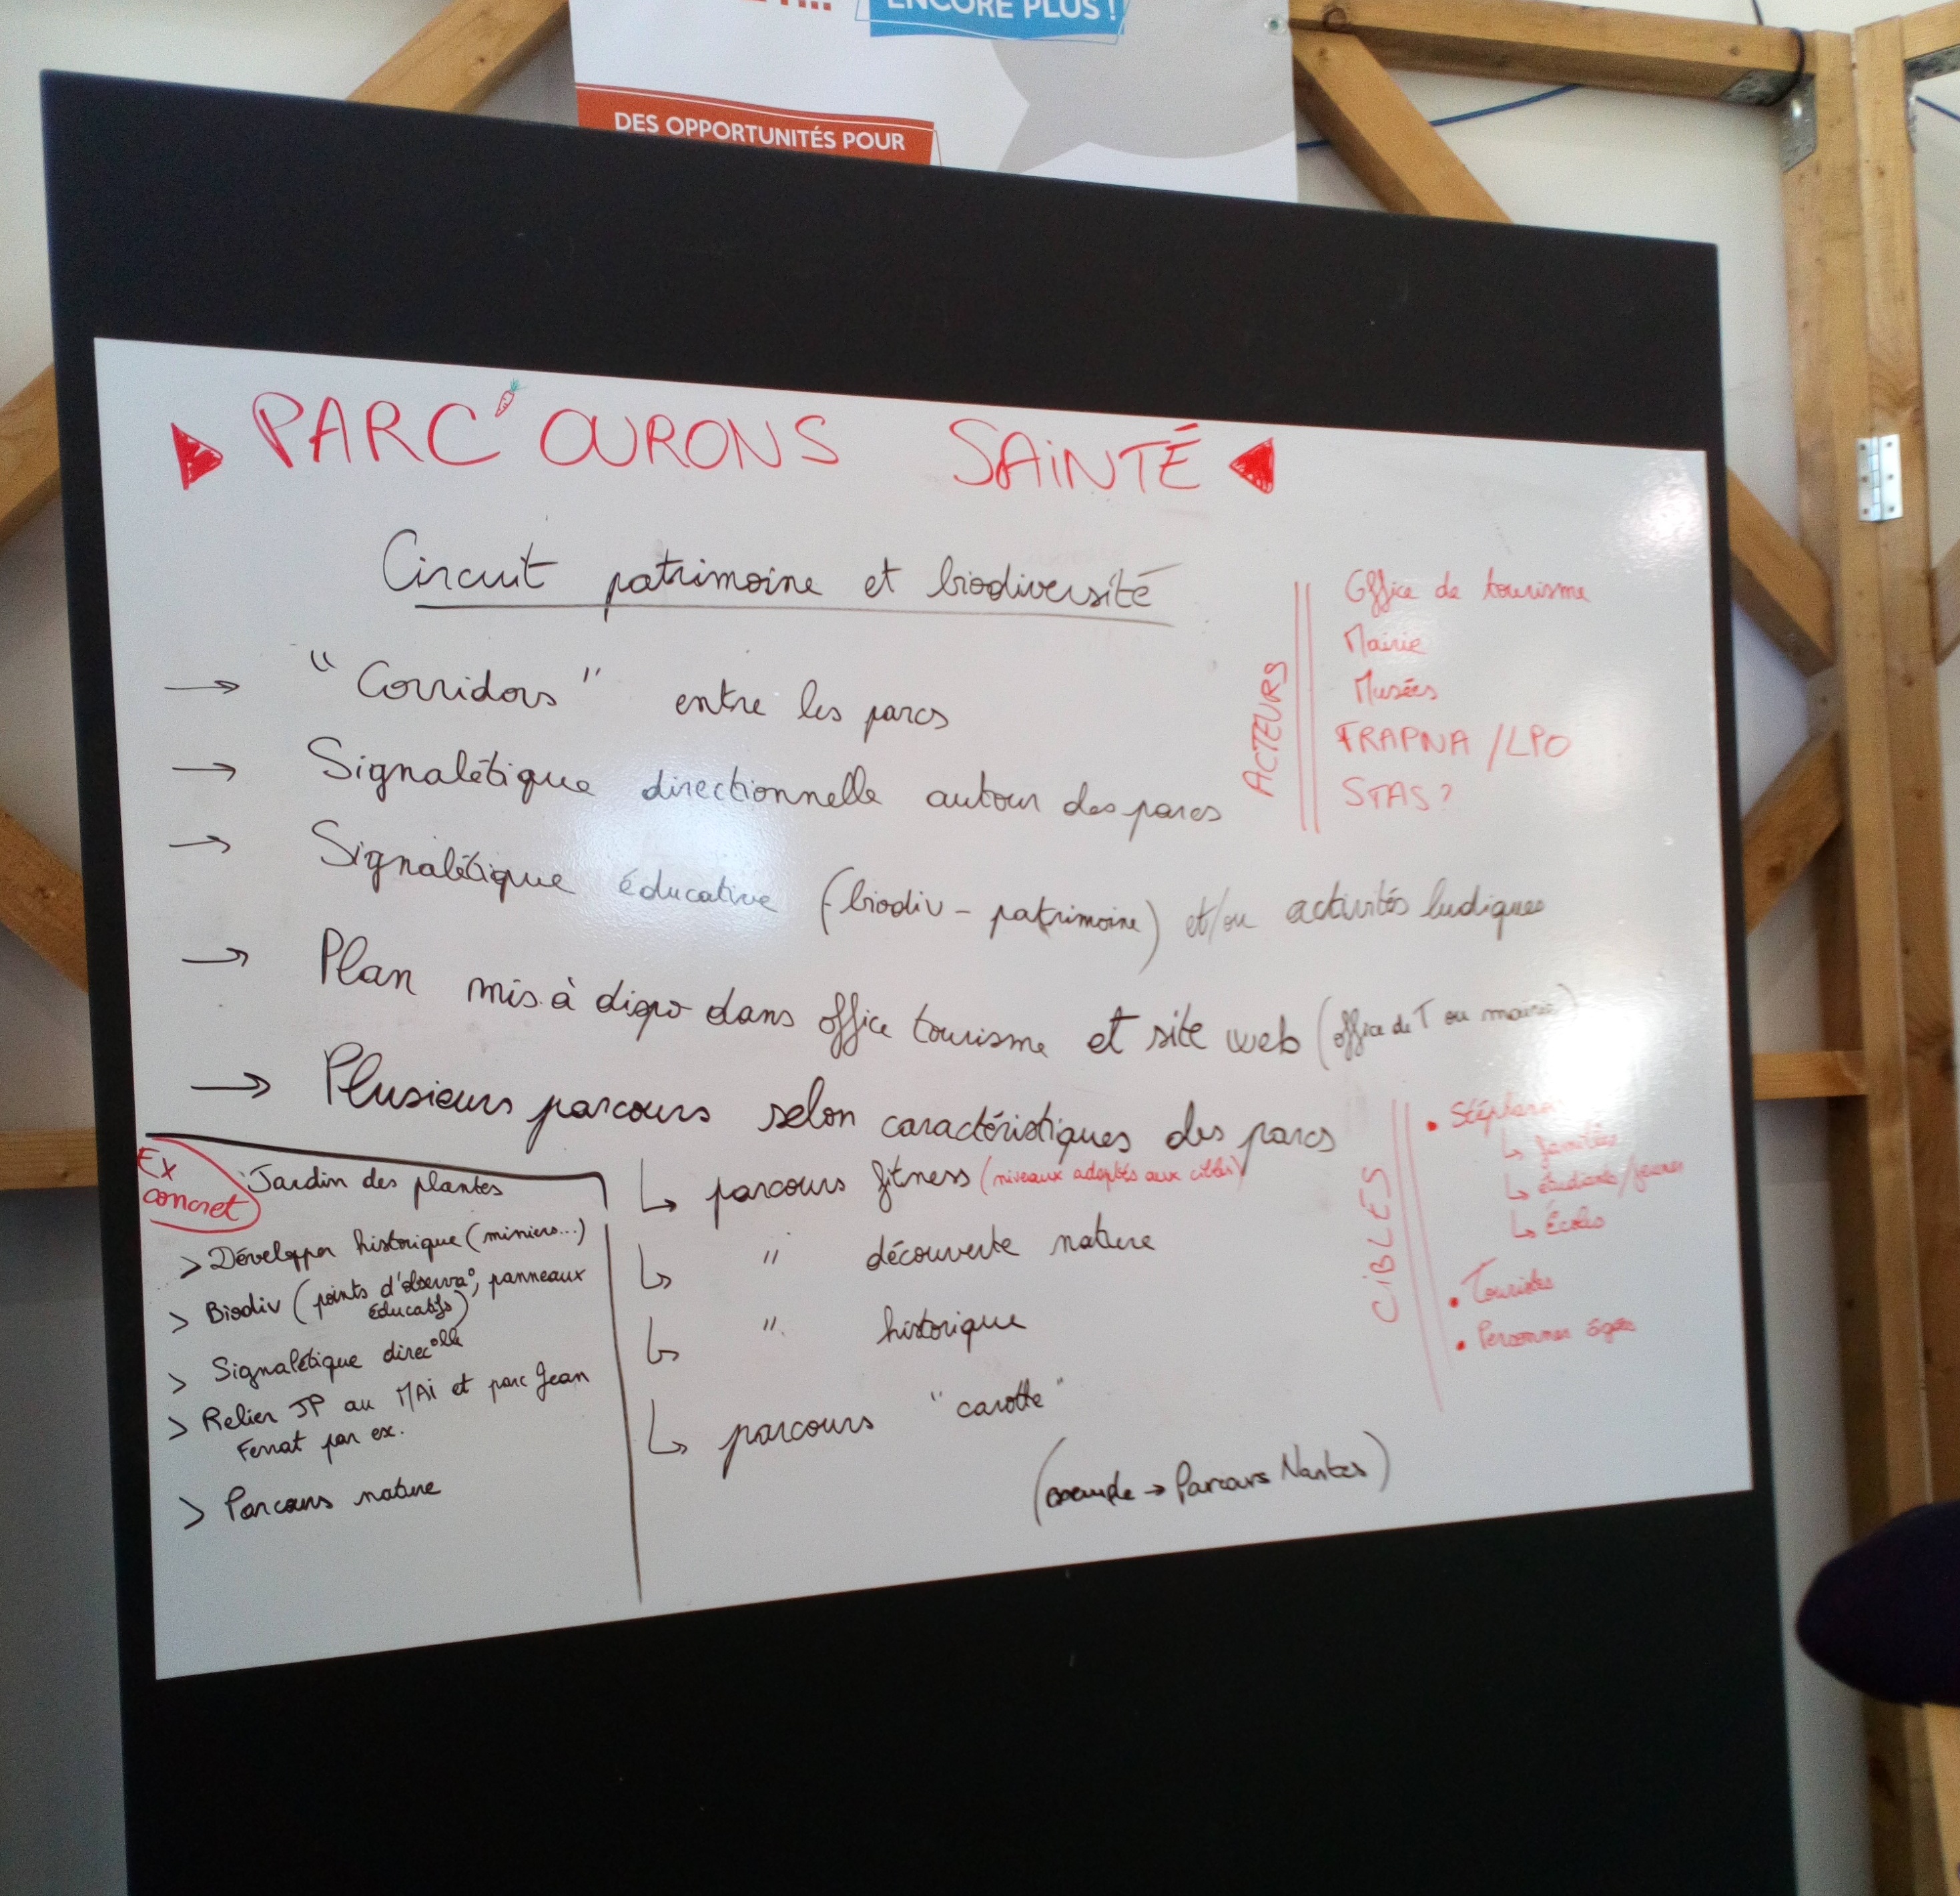 ENCORE PLUS !
DES OPPORTUNITÉS POUR
PARC'OURONS SAINTÉ
Circuit patrimoine et biodiversité
→ "Corridors" entre les parcs
→ Signalétique directionnelle autour des parcs
→ Signalétique éducative (biodiv - patrimoine) et/ou activités ludiques
→ Plan mis à dispo dans office tourisme et site web (office de T ou mairie)
→ Plusieurs parcours selon caractéristiques des parcs
↳ parcours fitness (niveaux adaptés aux cibles)
↳ " découverte nature
↳ " historique
↳ parcours "carotte"
(exemple → Parcours Nantes)
ACTEURS
Office de tourisme
Mairie
Musées
FRAPNA / LPO
STAS ?
CIBLES
• Stéphanois
↳ familles
↳ étudiants/jeunes
↳ Écoles
• Touristes
• Personnes âgées
Ex
concret
Jardin des plantes
> Développer historique (miniers...)
> Biodiv (points d'observa°, panneaux
éducatifs)
> Signalétique direc°lle
> Relier JP au MAI et parc Jean
Ferrat par ex.
> Parcours nature